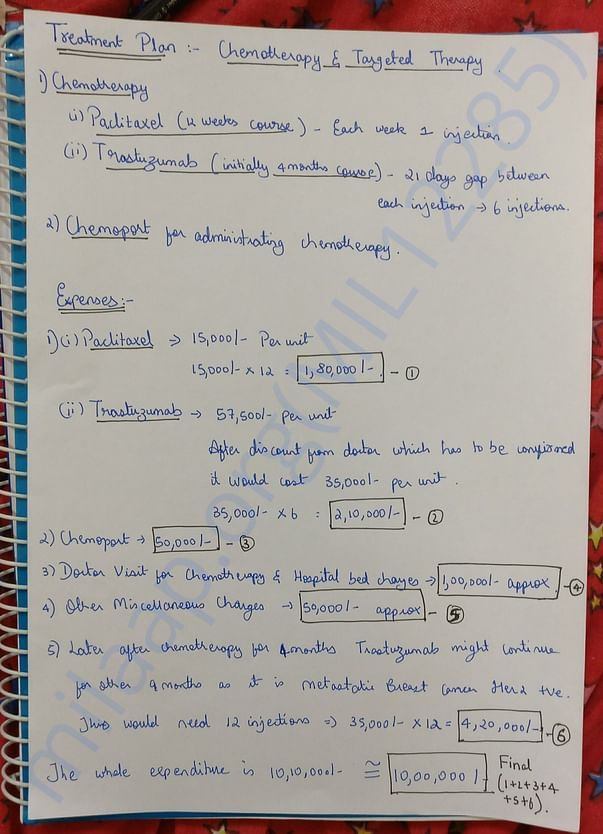 Treatment Plan :- Chemotherapy & Targeted Therapy.
1) Chemotherapy
(i) Paclitaxel (12 weeks course) - Each week 1 injection.
(ii) Trastuzumab (initially 4 months course) - 21 days gap between
each injection → 6 injections.
2) Chemoport for administrating chemotherapy.
Expenses:-
1)(i) Paclitaxel → 15,000/- Per unit
15,000/- × 12 = 1,80,000/- - ①
(ii) Trastuzumab → 57,500/- per unit
After discount from doctor which has to be confirmed
it would cost 35,000/- per unit.
35,000/- × 6 = 2,10,000/- - ②
2) Chemoport → 50,000/- - ③
3) Doctor Visit for Chemotherapy & Hospital bed charges → 1,00,000/- approx. - ④
4) Other Miscellaneous Charges → 50,000/- approx - ⑤
5) Later after chemotherapy for 4 months Trastuzumab might continue
for other 9 months as it is metastatic Breast cancer Her2 +ve.
This would need 12 injections ⇒ 35,000/- × 12 = 4,20,000/- - ⑥
The whole expenditure is 10,10,000/- ≅ 10,00,000/- Final
(1+2+3+4
+5+6).
milaap.org(MIL12285)